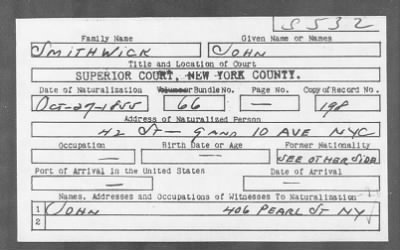 S532
Family Name Given Name or Names
SMITHWICK JOHN
Title and Location of Court
SUPERIOR COURT, NEW YORK COUNTY.
Date of Naturalization Volume or Bundle No. Page No. Copy of Record No.
OCT-27-1855 66 — 198
Address of Naturalized Person
42 ST — 9 AND 10 AVE NYC
Occupation Birth Date or Age Former Nationality
— — SEE OTHER SIDE
Port of Arrival in the United States Date of Arrival
— —
Names, Addresses and Occupations of Witnesses To Naturalization
1 JOHN 406 PEARL ST NY
2